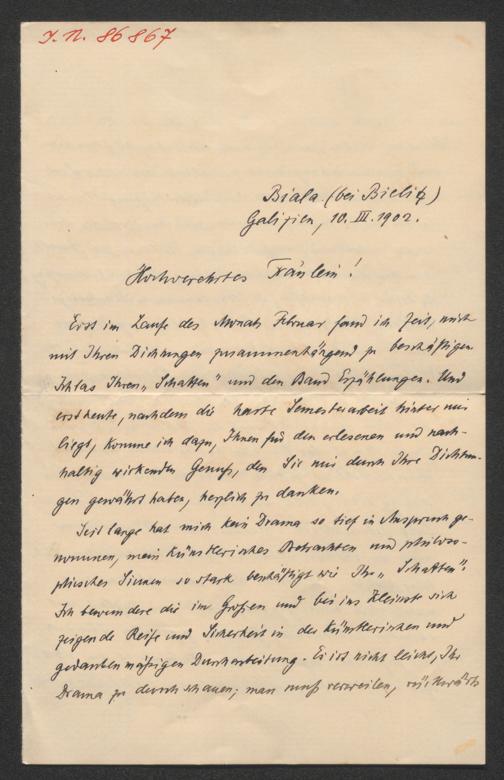 J. N. 86867
Biala (bei Bielitz)
Galizien, 10. III. 1902.
Hochverehrtes Fräulein!
Erst im Laufe des Monats Februar fand ich Zeit, mich
mit Ihren Dichtungen zusammenhängend zu beschäftigen.
Ich las Ihren „Schatten" und den Band Erzählungen. Und
erst heute, nachdem die harte Semesterarbeit hinter mir
liegt, komme ich dazu, Ihnen für den erlesenen und nach-
haltig wirkenden Genuß, den Sie mir durch Ihre Dichtun-
gen gewährt haben, herzlich zu danken.
Seit lange hat mich kein Drama so tief in Anspruch ge-
nommen, mein künstlerisches Betrachten und philoso-
phisches Sinnen so stark beschäftigt wie Ihr „Schatten".
Ich bewundere die im Großen und bis ins Kleinste sich
zeigende Reife und Sicherheit in der künstlerischen und
gedankenmäßigen Durcharbeitung. Es ist nicht leicht, Ihr
Drama zu durchschauen; man muß verweilen, rückwärts